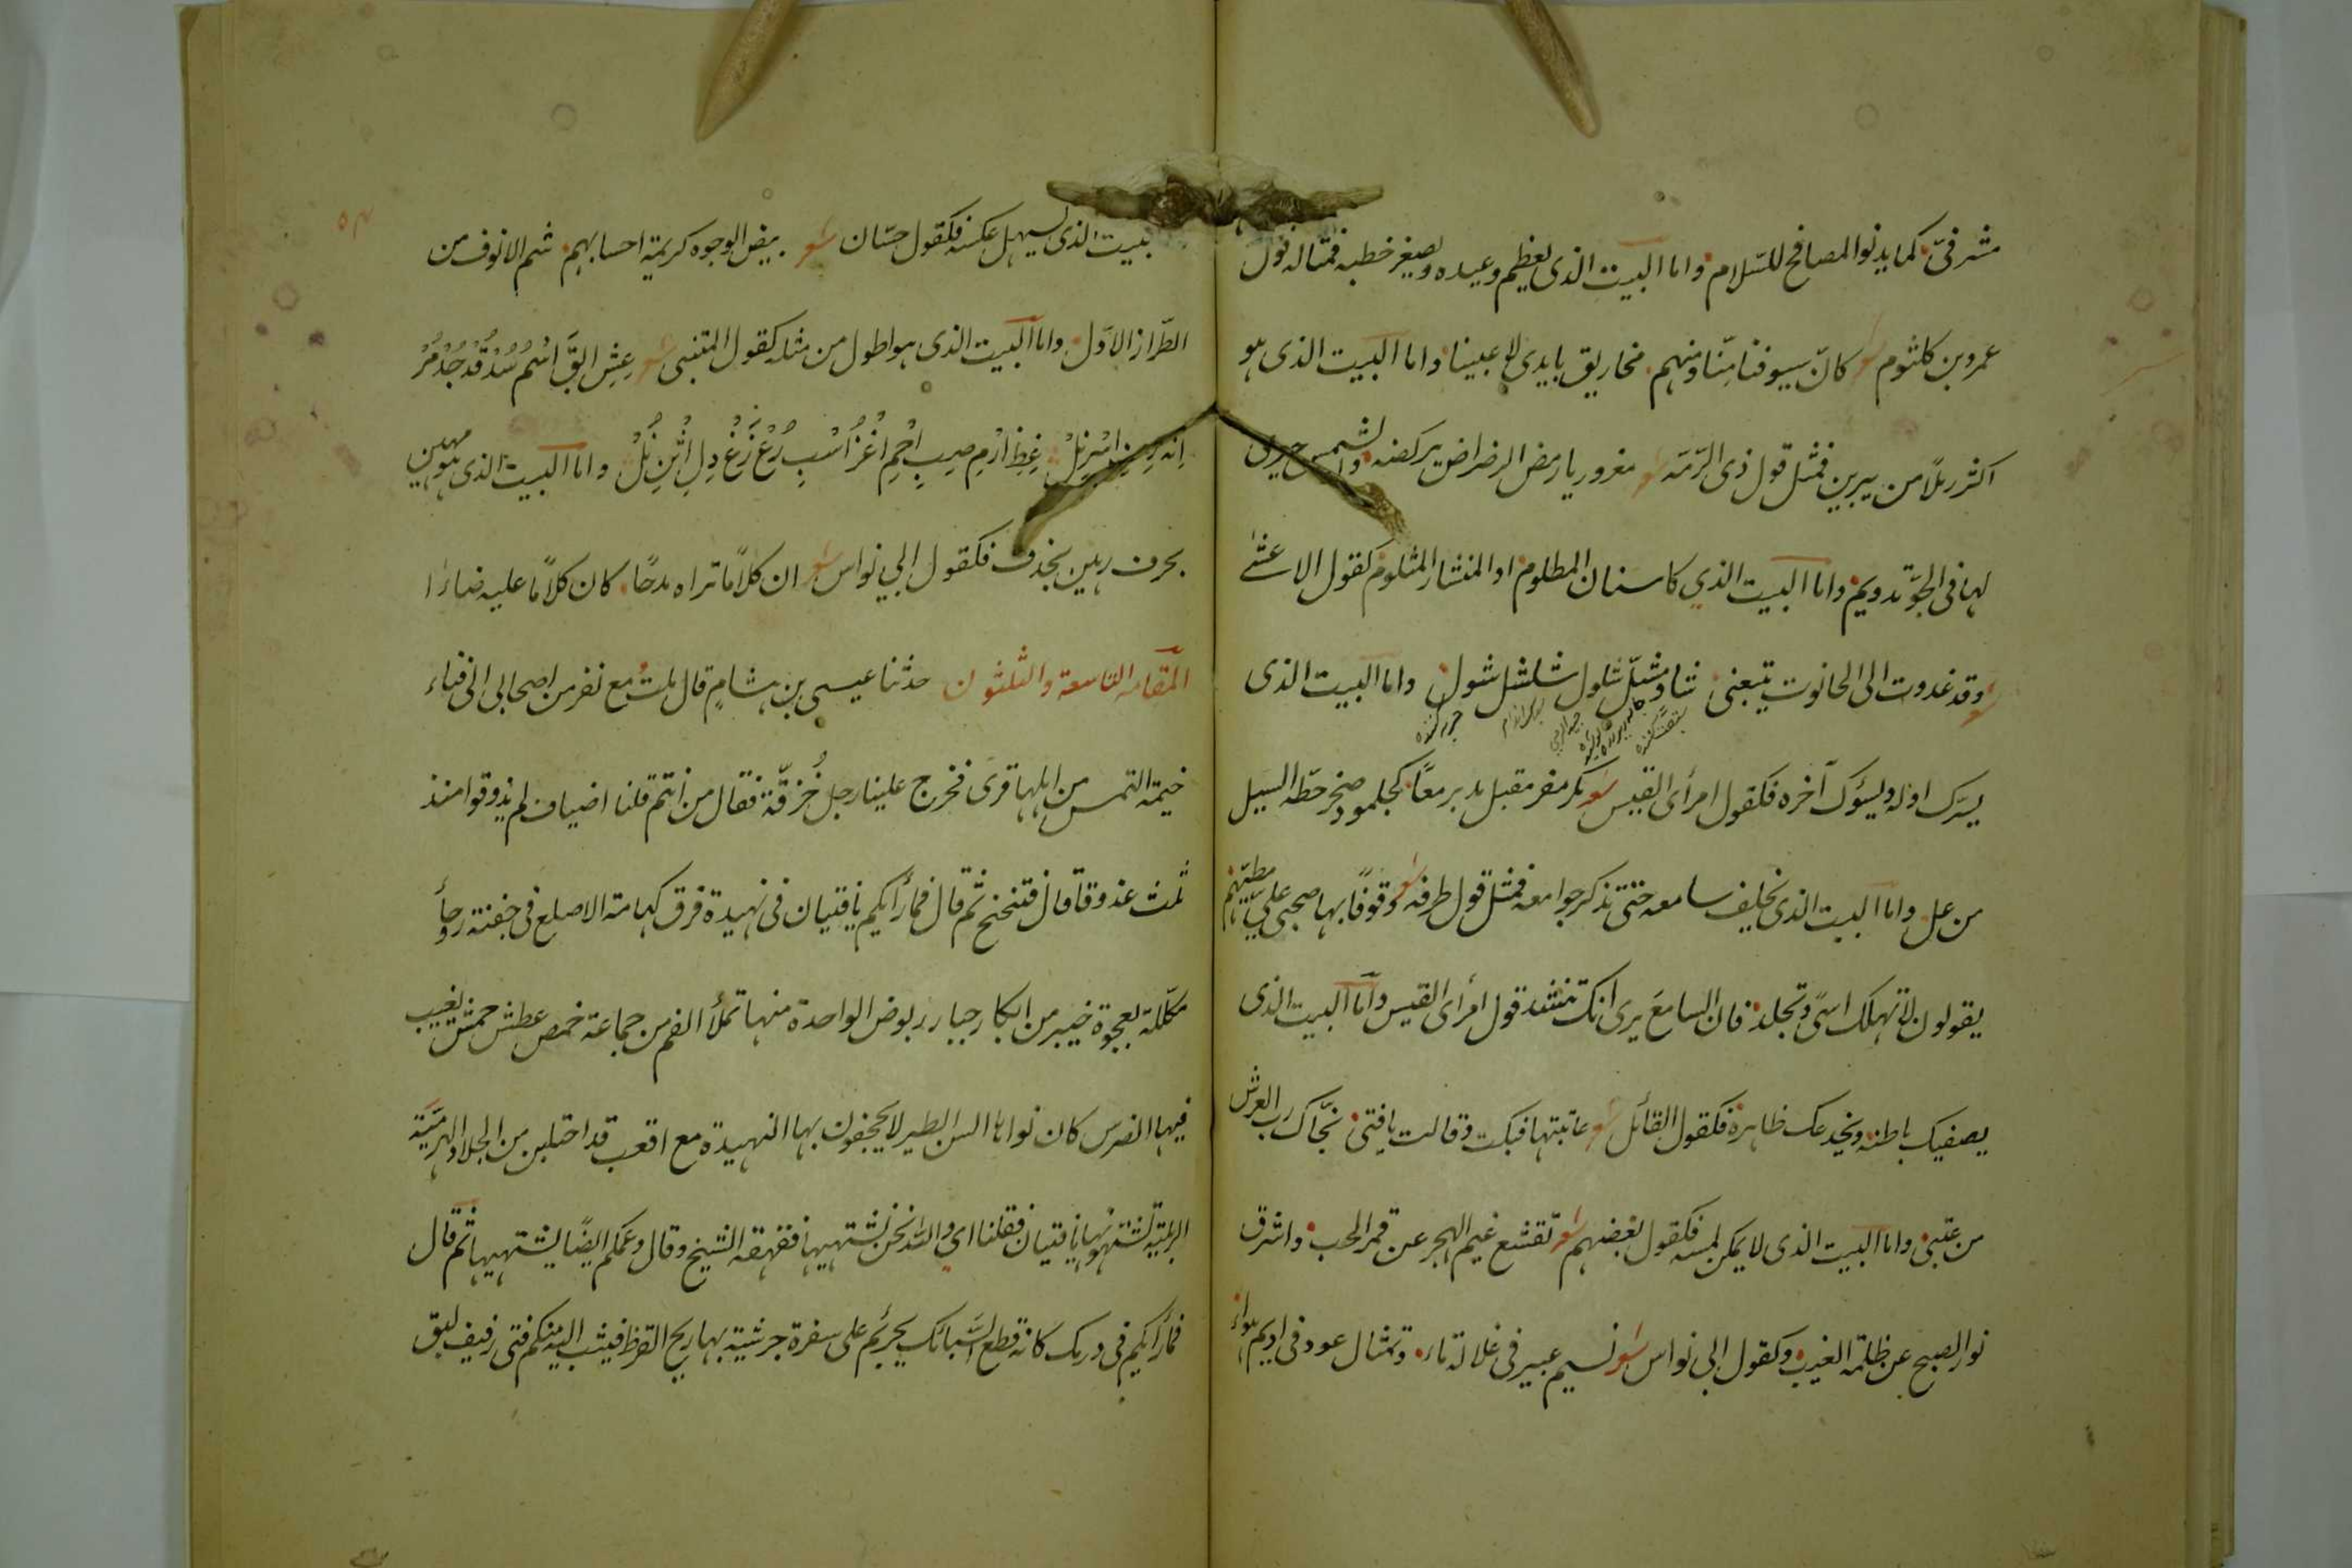 مشرفىّ كما يدنوا المصافح للسّلام واما البيت الذى يعظم وعيده ويصغر خطبه فمثاله قول
عمرو بن كلثوم شعر كانّ سيوفنا منّا ومنهم مخاريق بايدى لاعبينا واما البيت الذى هو
اكثر رملاً من يبرين فمثل قول ذى الرّمّه شعر مغرور يا رمض الرضراض يركضه والشمس حيرى
لها فى الجوّ تدويم واما البيت الذي كاسنان المظلوم او المنشار المثلوم كقول الاعشى
شعر وقد غدوت الى الحانوت يتبعنى شاو مشلّ شلول شلشل شول واما البيت الذى
يسرّك اوله ويسؤك آخره فكقول امرأى القيس شعر مكر مفر مقبل مدبر معاً كجلمود صخر حطّه السيل
من عل واما البيت الذى يخلف سامعه حتى تذكر جوامعه فمثل قول طرفه شعر وقوفًا بها صحبى علىّ مطيّهم
يقولون لا تهلك اسًى وتجلد فان السامعَ يرى انك تنشد قول امرأى القيس واما البيت الذى
يصفيك باطنه ويخدعك ظاهره فكقول القائل شعر عاتبتها فبكت وقالت يا فتى نجّاك رب العرش
من عتبى واما البيت الذى لا يمكن لمسه فكقول بعضهم شعر تقشع غيم الهجر عن قمر الحب واشرق
نور الصبح عن ظلمة الغيب وكقول ابى نواس شعر نسيم عبير فى غلالة ماء وتمثال عود فى اديم هواء
بيت الذى يسهل عكسه فكقول حسّان شعر بيض الوجوه كريمة احسابهم شم الانوف من
الطّراز الاوّل واما البيت الذى هو اطول من مثله كقول المتنبى شعر عِشِ ابقَ اسْمُ سُدْ قُدْ جُدْ مُرْ
اِنهَ رِ فِ اسْرِ نَلْ غِظِ ارْمِ صِبِ احْمِ اغْزُ اسْبِ رُعْ زَعْ دِ لِ اثْنِ نُلْ واما البيت الذى هو مهين
بحرف رهين بحذف فكقول ابي نواس شعر ان كلامًا تراه مدحًا كان كلامًا عليه ضاءا
المقامه التاسعة والثلثون حدثنا عيسى بن هشامٍ قال ملتُ مع نفر من اصحابى الى فناء
خيمة التمس من اهلها قرى فخرج علينا رجل حُزقّة فقال من انتم قلنا اضياف لم يذوقوا منذ
ثلث عذوقا قال فتنحنح ثم قال فما رأيكم يا فتيان فى نهيدة فرق كهامة الاصلع فى جفنة روحأ
مكلّلة بعجوة خيبر من اكبار جبار ربوض الواحدة منها تملأ الفم من جماعة خمص عطش خمش يغيب
فيها الضرس كان نواها السن الطير لا يجحفون بها النهيدة مع اقعب قد احتلبن من الجلاد الهرميّة
الربليّة تشتهونها يا فتيان فقلنا اى والله نحن نشتهيها فقهقه الشيخ وقال وعمّكم ايضًا يشتهيها ثم قال
فما رأيكم فى درمك كانه قطع السّبائك يجرثم على سفرة جرشية بها ريح القرظ فيثب اليه منكم فتى رفيف لبق